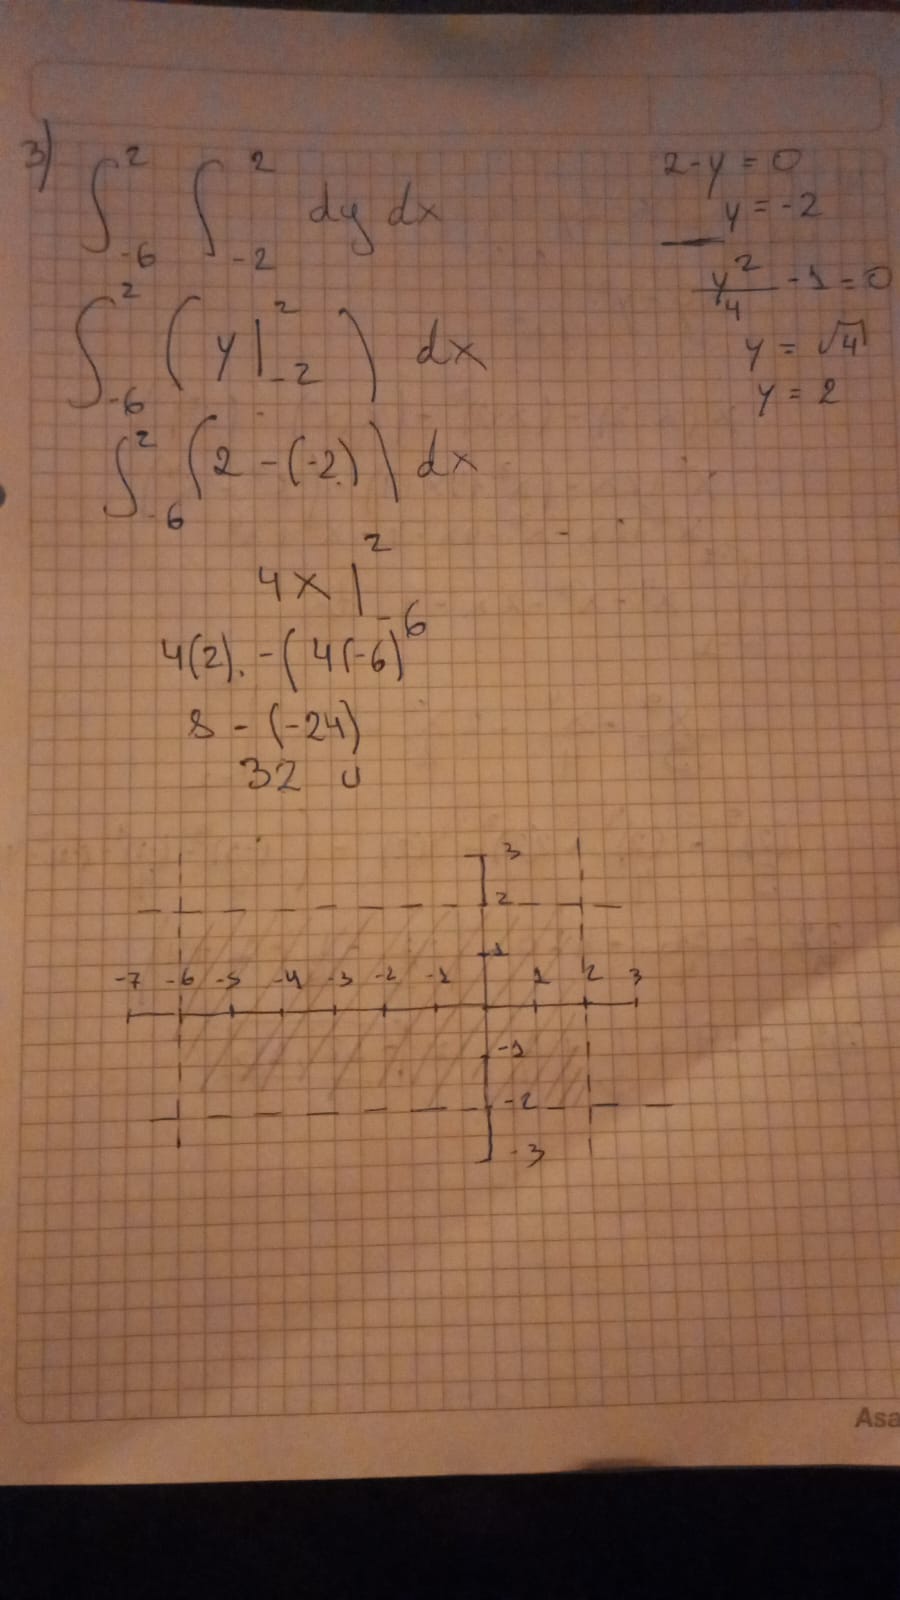 3) ∫_{-6}^{2} ∫_{-2}^{2} dy dx
∫_{-6}^{2} ( y |_{-2}^{2} ) dx
∫_{-6}^{2} (2 - (-2)) dx
4x |_{-6}^{2}
4(2). - (4(-6)
8 - (-24)
32 u
2 - y = 0
y = -2
y^2/4 - 1 = 0
y = √4
y = 2
3
2
1
-7 -6 -5 -4 -3 -2 -1 1 2 3
-1
-2
-3
Asa